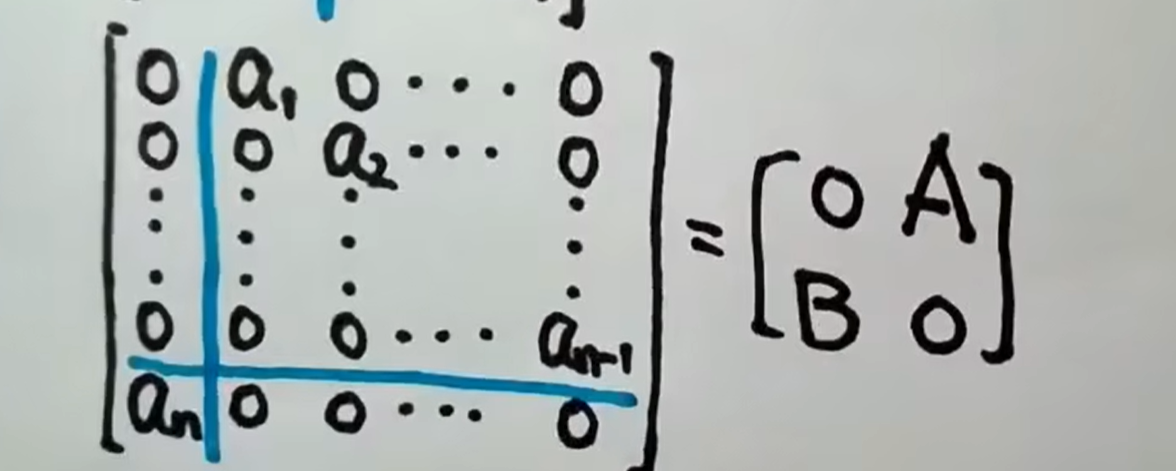 0 a₁ 0 ··· 0
0 0 a₂ ··· 0
⋮ ⋮ ⋮ ⋮
0 0 0 ··· aₙ₋₁
aₙ 0 0 ··· 0
=
0 A
B 0